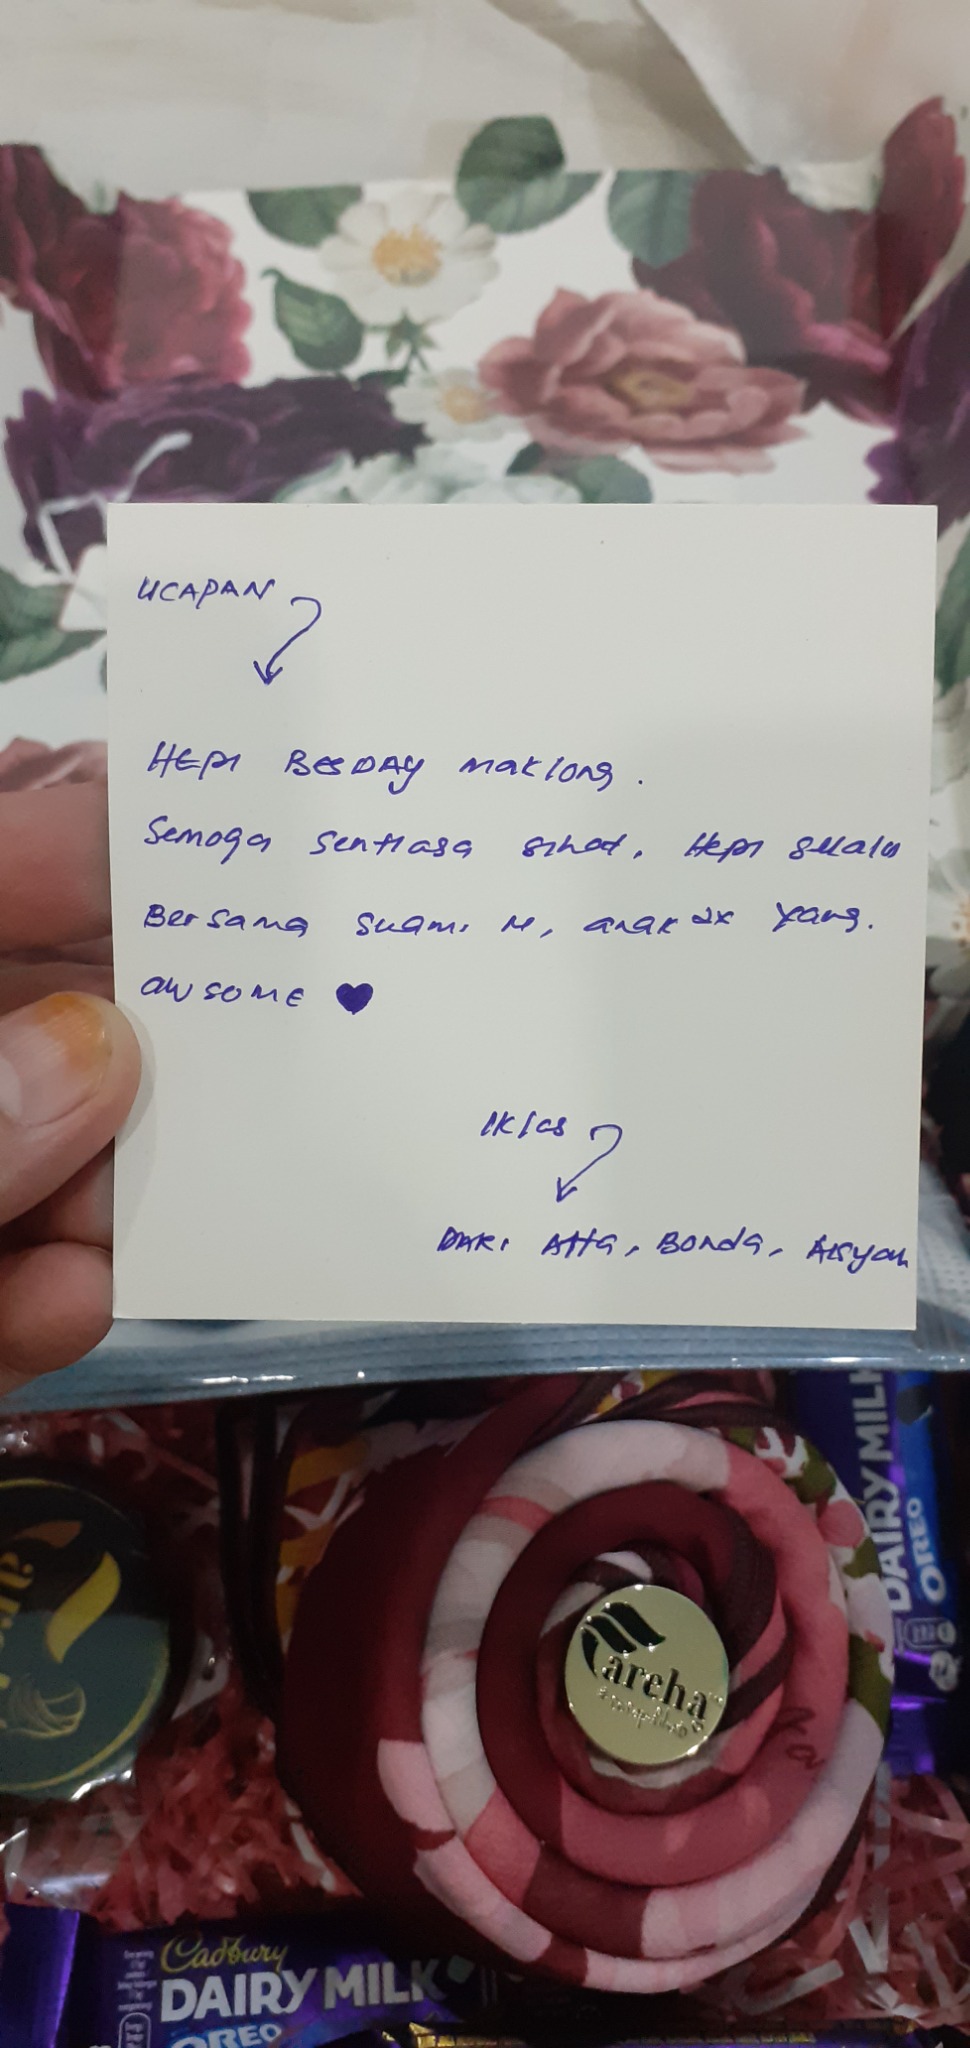 UCAPAN
HEPI BESDAY maklong.
Semoga sentiasa sihat, Hepi selalu
Bersama suami n, anak 2x yang.
awsome ♥
Iklas
DARI Atta, Bonda, Aisyah
DAIRY MILK
OREO
areha
Cadbury
DAIRY MILK
OREO